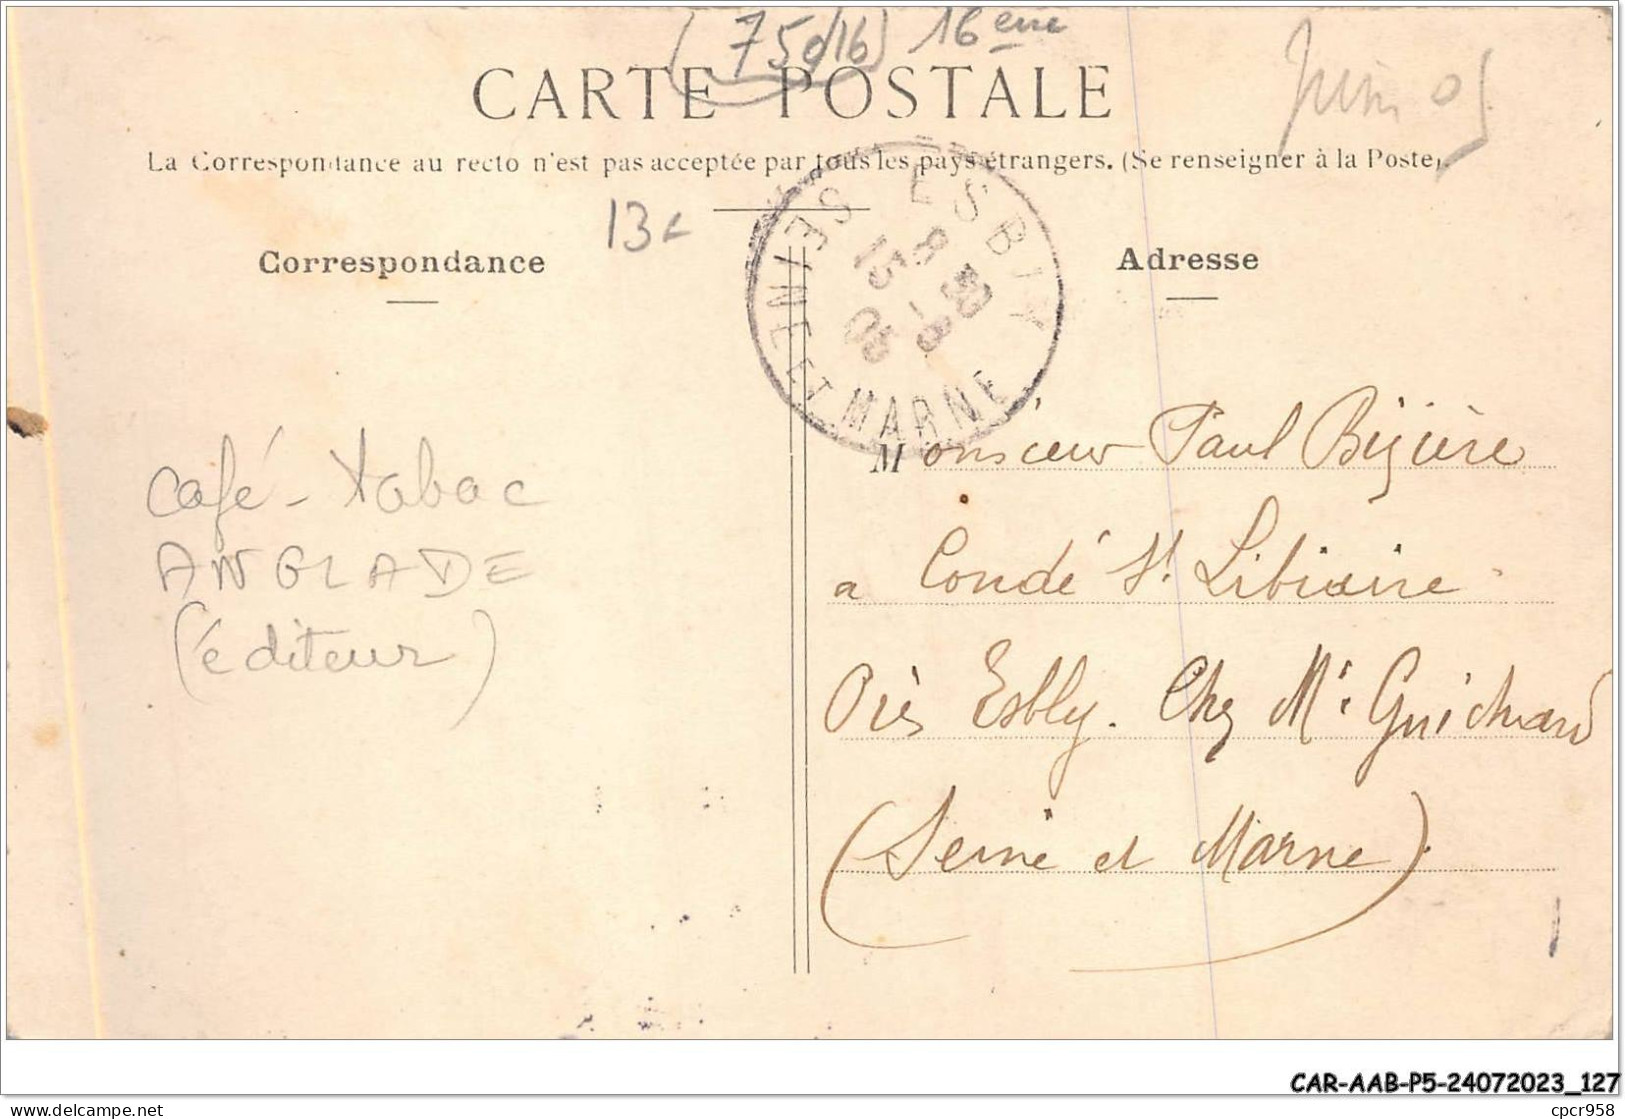 (75d16) 16ème
CARTE POSTALE
Juin 05
La Correspondance au recto n'est pas acceptée par tous les pays étrangers. (Se renseigner à la Poste).
13c
ESBLY
SEINE ET MARNE
8 30
15 -8
05
Correspondance
Adresse
Café-tabac
ANGLADE
(éditeur)
Monsieur Paul
a Condé St Libiaire
Près Esbly. Chez Mr Guichard
(Seine et Marne)
CAR-AAB-P5-24072023_127
Delcampe.net
cpcr958